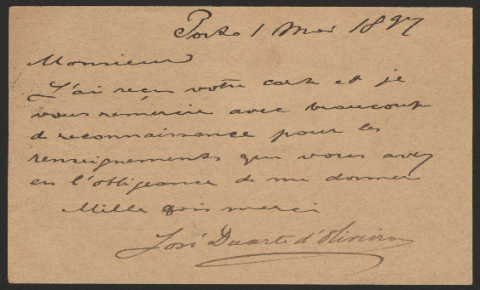 Porto 1 Mai 1897
Monsieur
J'ai reçu votre carte et je
vous remercie avec beaucoup
de reconnaissance pour les
renseignements que vous avez
eu l'obligeance de me donner
Mille fois merci
José Duarte d'Oliveira